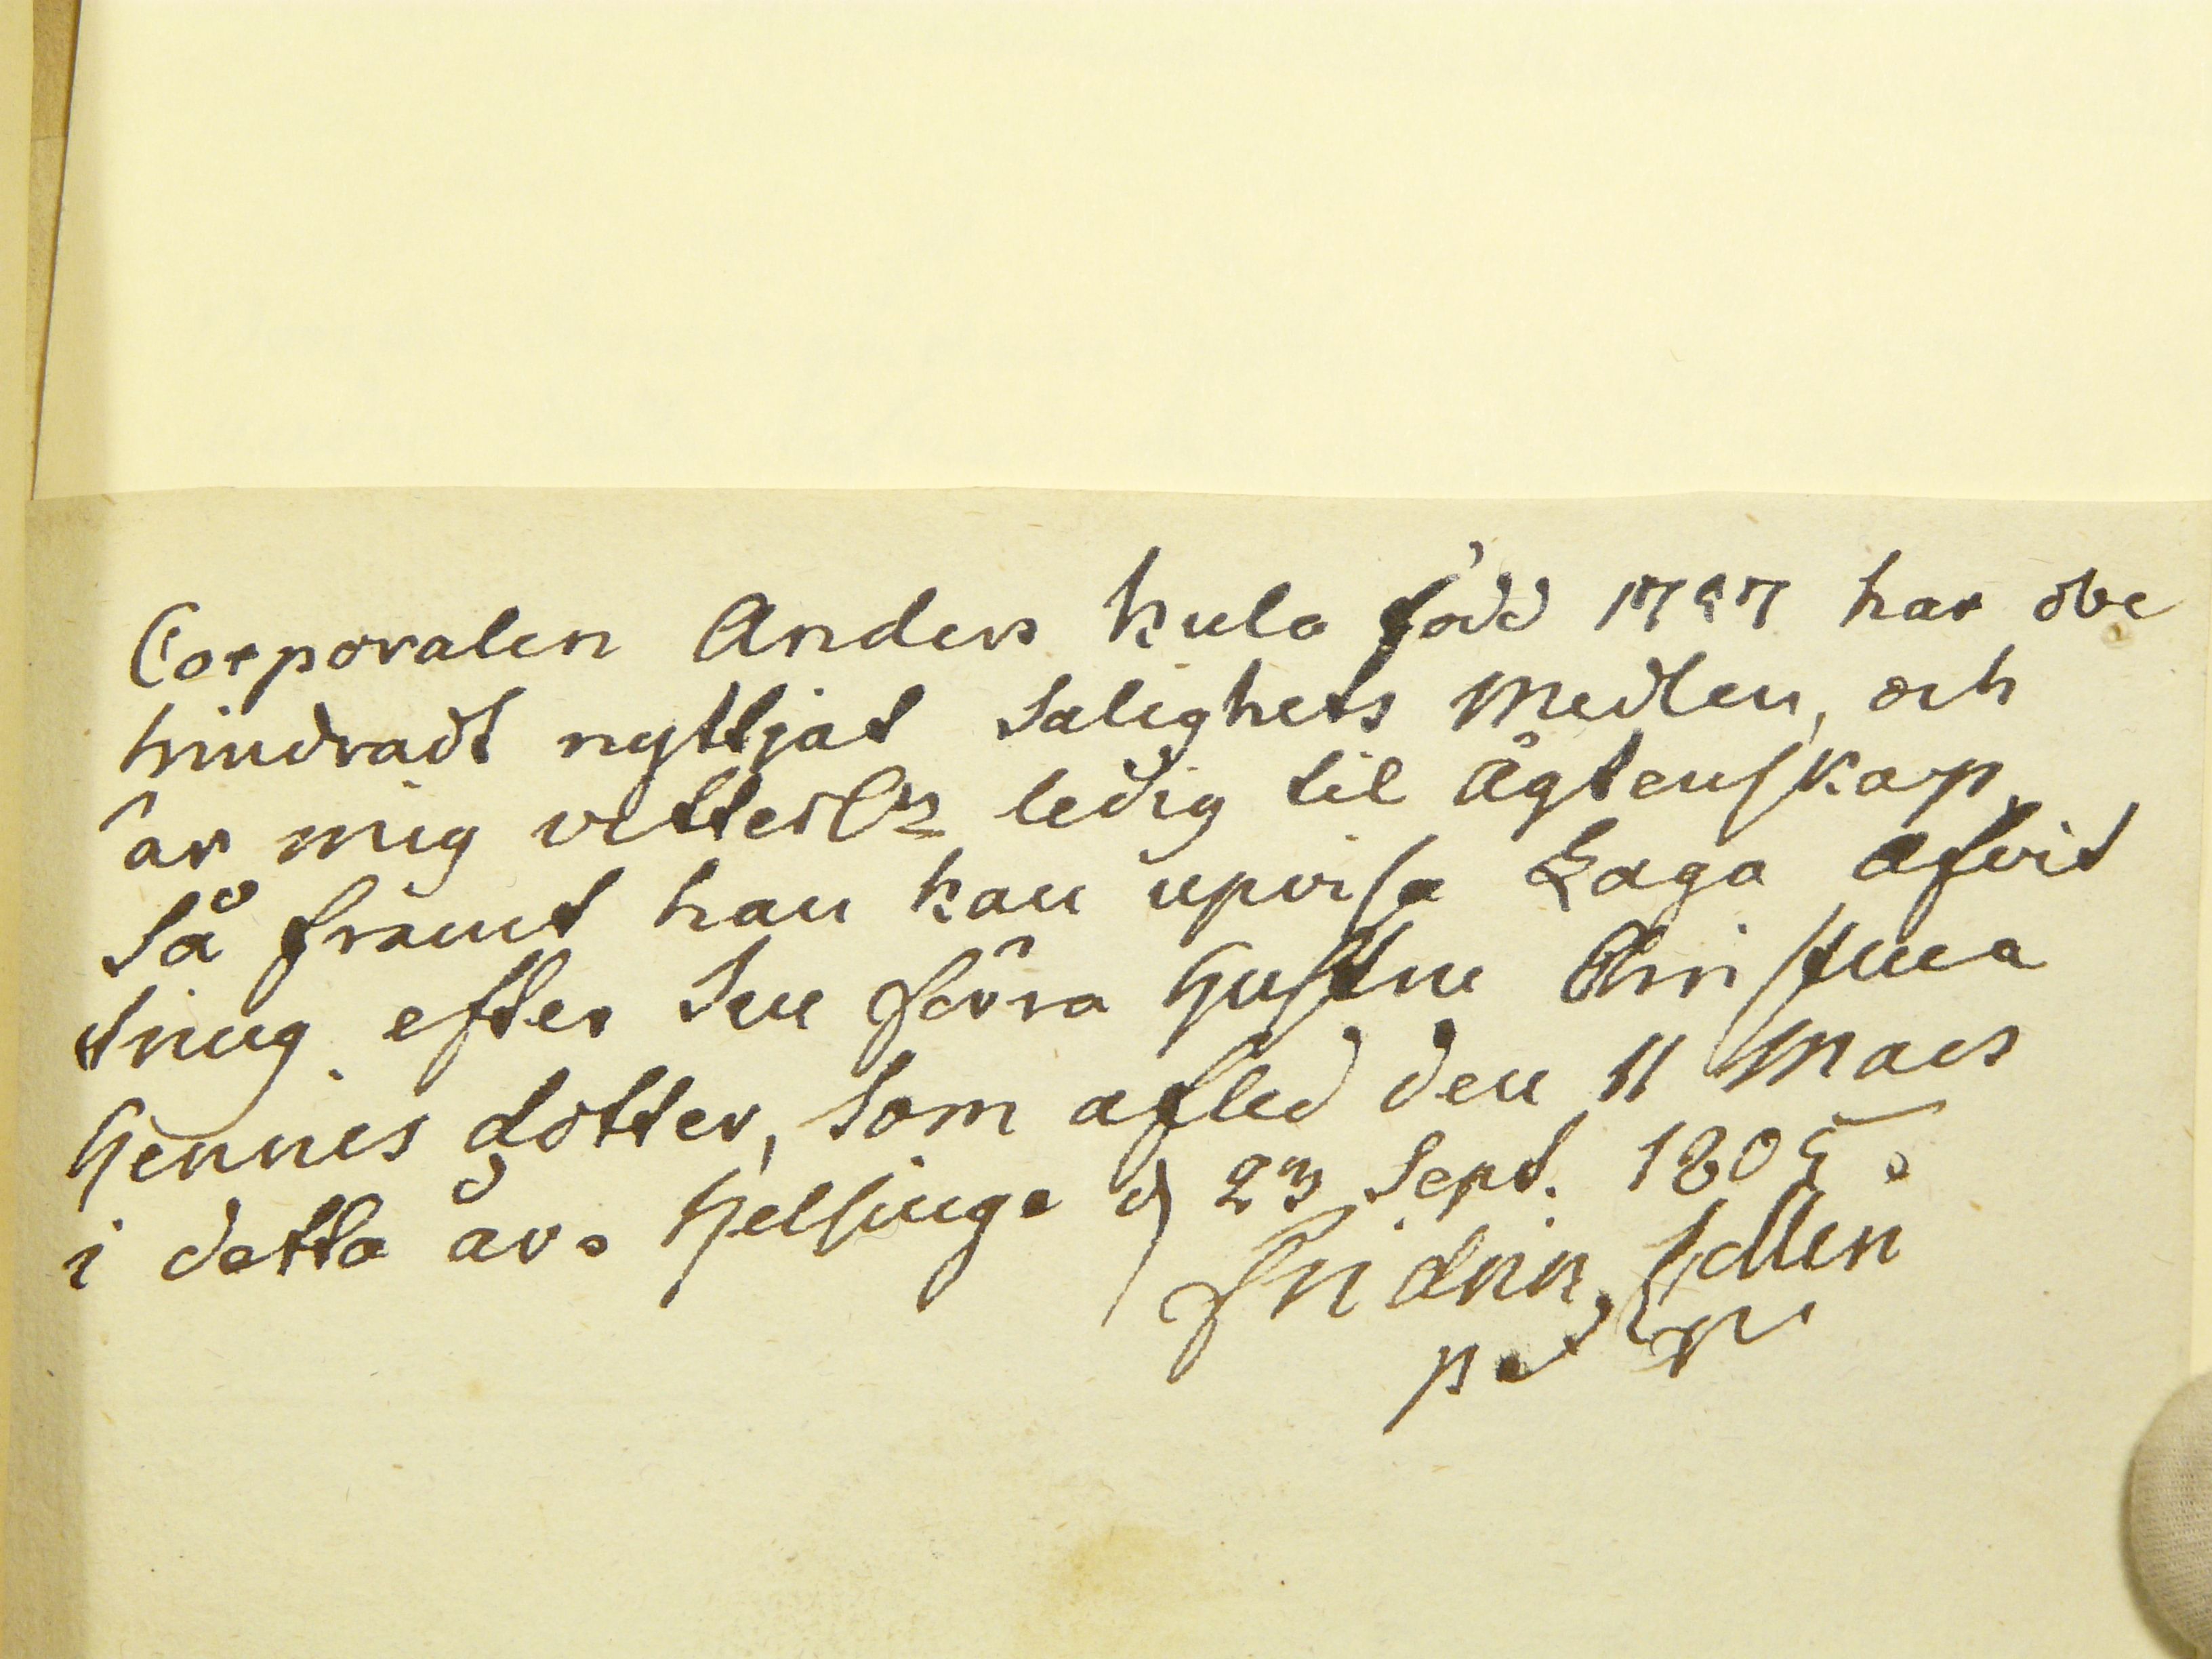 Corporalen Anders Kula född 1767 har obe
hindradt nyttjat Salighets Medlen, och
är mig vetterl:n ledig til ägtenskap,
så framt han kan upvisa Laga afvit
tring efter Sin förra Hustru Christina
Hennes dotter, Som afled den 11 Mars
i detta år. Helsinge d 23 Sept. 1805.
Fridrik